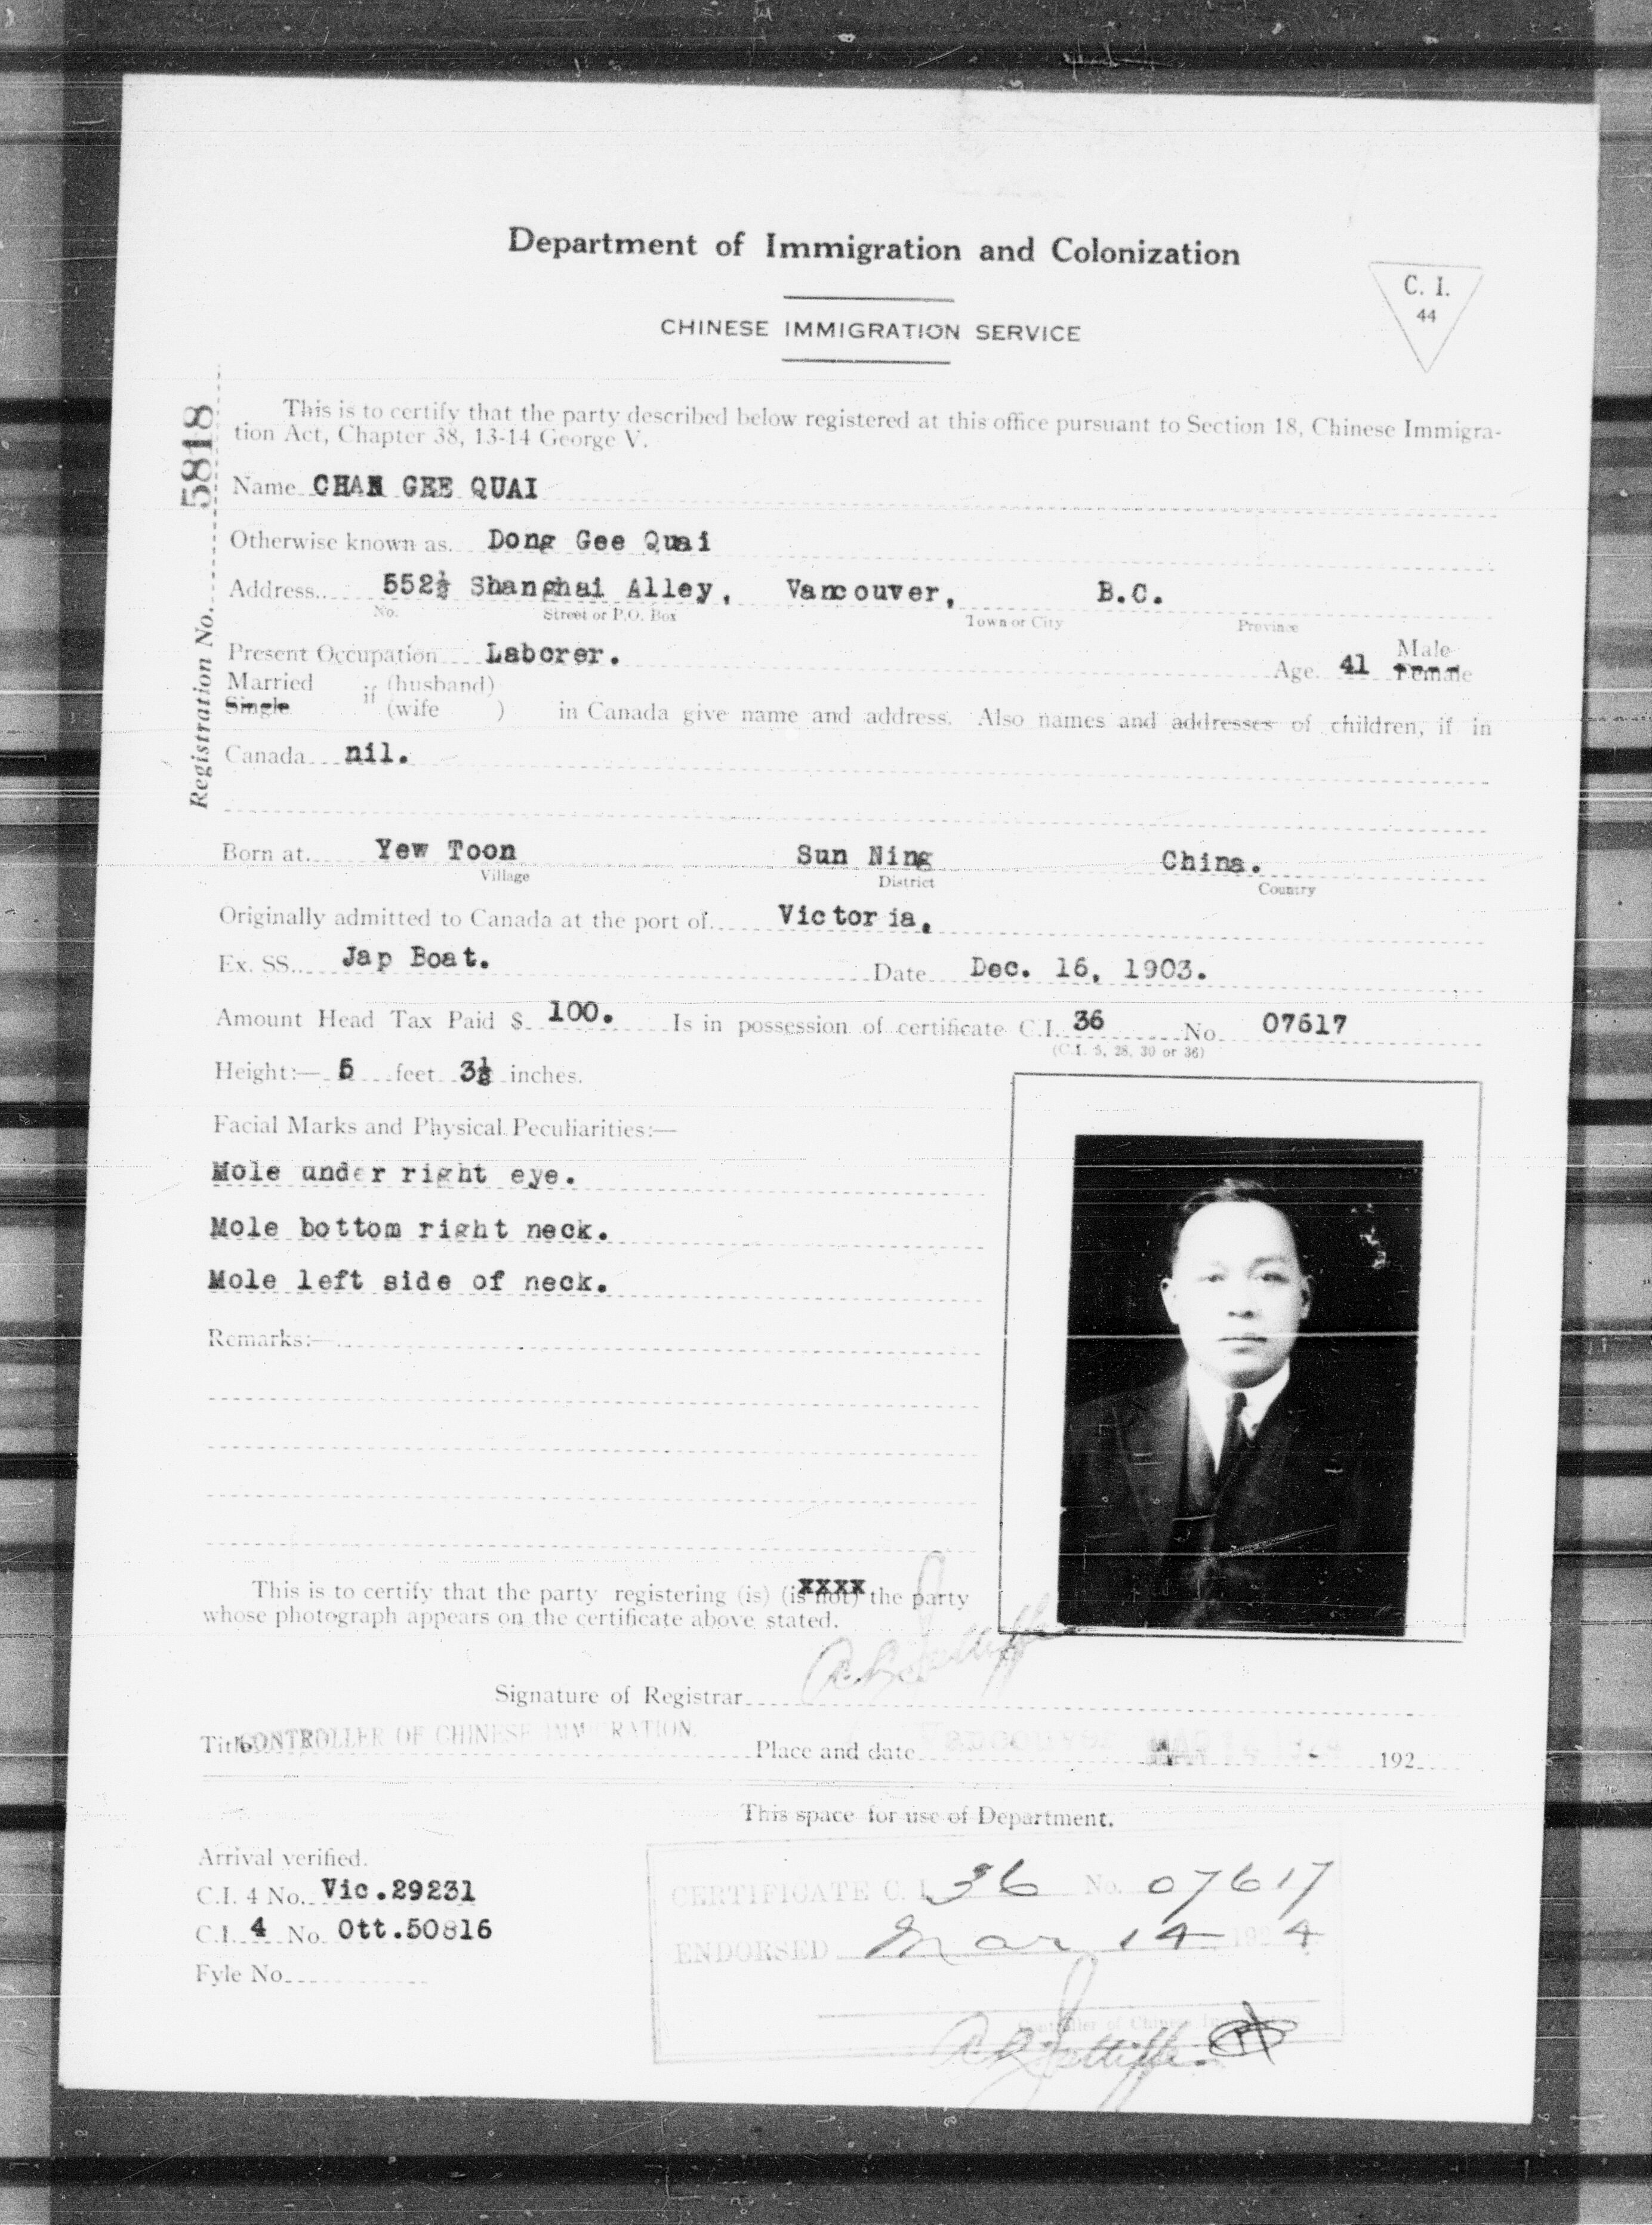 Department of Immigration and Colonization
CHINESE IMMIGRATION SERVICE
C. I.
44
Registration No. 5818
This is to certify that the party described below registered at this office pursuant to Section 18, Chinese Immigra-
tion Act, Chapter 38, 13-14 George V.
Name CHAN GEE QUAI
Otherwise known as Dong Gee Quai
Address 552½ Shanghai Alley, Vancouver, B.C.
No. Street or P.O. Box Town or City Province
Present Occupation Laborer. Age 41 Male Female
Married Single if (husband) (wife ) in Canada give name and address. Also names and addresses of children, if in
Canada nil.
Born at Yew Toon Sun Ning China.
Village District Country
Originally admitted to Canada at the port of Victoria.
Ex. SS. Jap Boat. Date Dec. 16, 1903.
Amount Head Tax Paid $ 100. Is in possession of certificate C.I. 36 No. 07617
(C.I. 5, 28, 30 or 36)
Height:— 5 feet 3½ inches.
Facial Marks and Physical Peculiarities:—
Mole under right eye.
Mole bottom right neck.
Mole left side of neck.
Remarks:—
This is to certify that the party registering (is) (is not) the party
xxxx
whose photograph appears on the certificate above stated.
Signature of Registrar
Title CONTROLLER OF CHINESE IMMIGRATION. Place and date Vancouver MAR 14 1924 192
This space for use of Department.
Arrival verified.
C.I. 4 No. Vic.29231
C.I. 4 No. Ott.50816
Fyle No.
CERTIFICATE C. I. 36 No. 07617
ENDORSED Mar 14 1924
Controller of Chinese Immigration